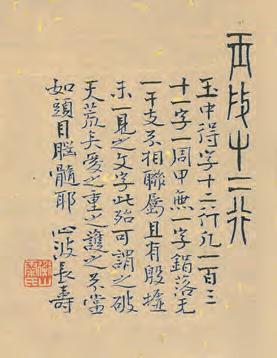 十二行
玉中得字十二行凡一百三
十一字一周甲無一字錯落无
一干支不相聯屬且有殷墟
未一見之文字此殆可謂之破
天荒矣愛之重之護之不啻
如頭目腦髓耶 心波長壽